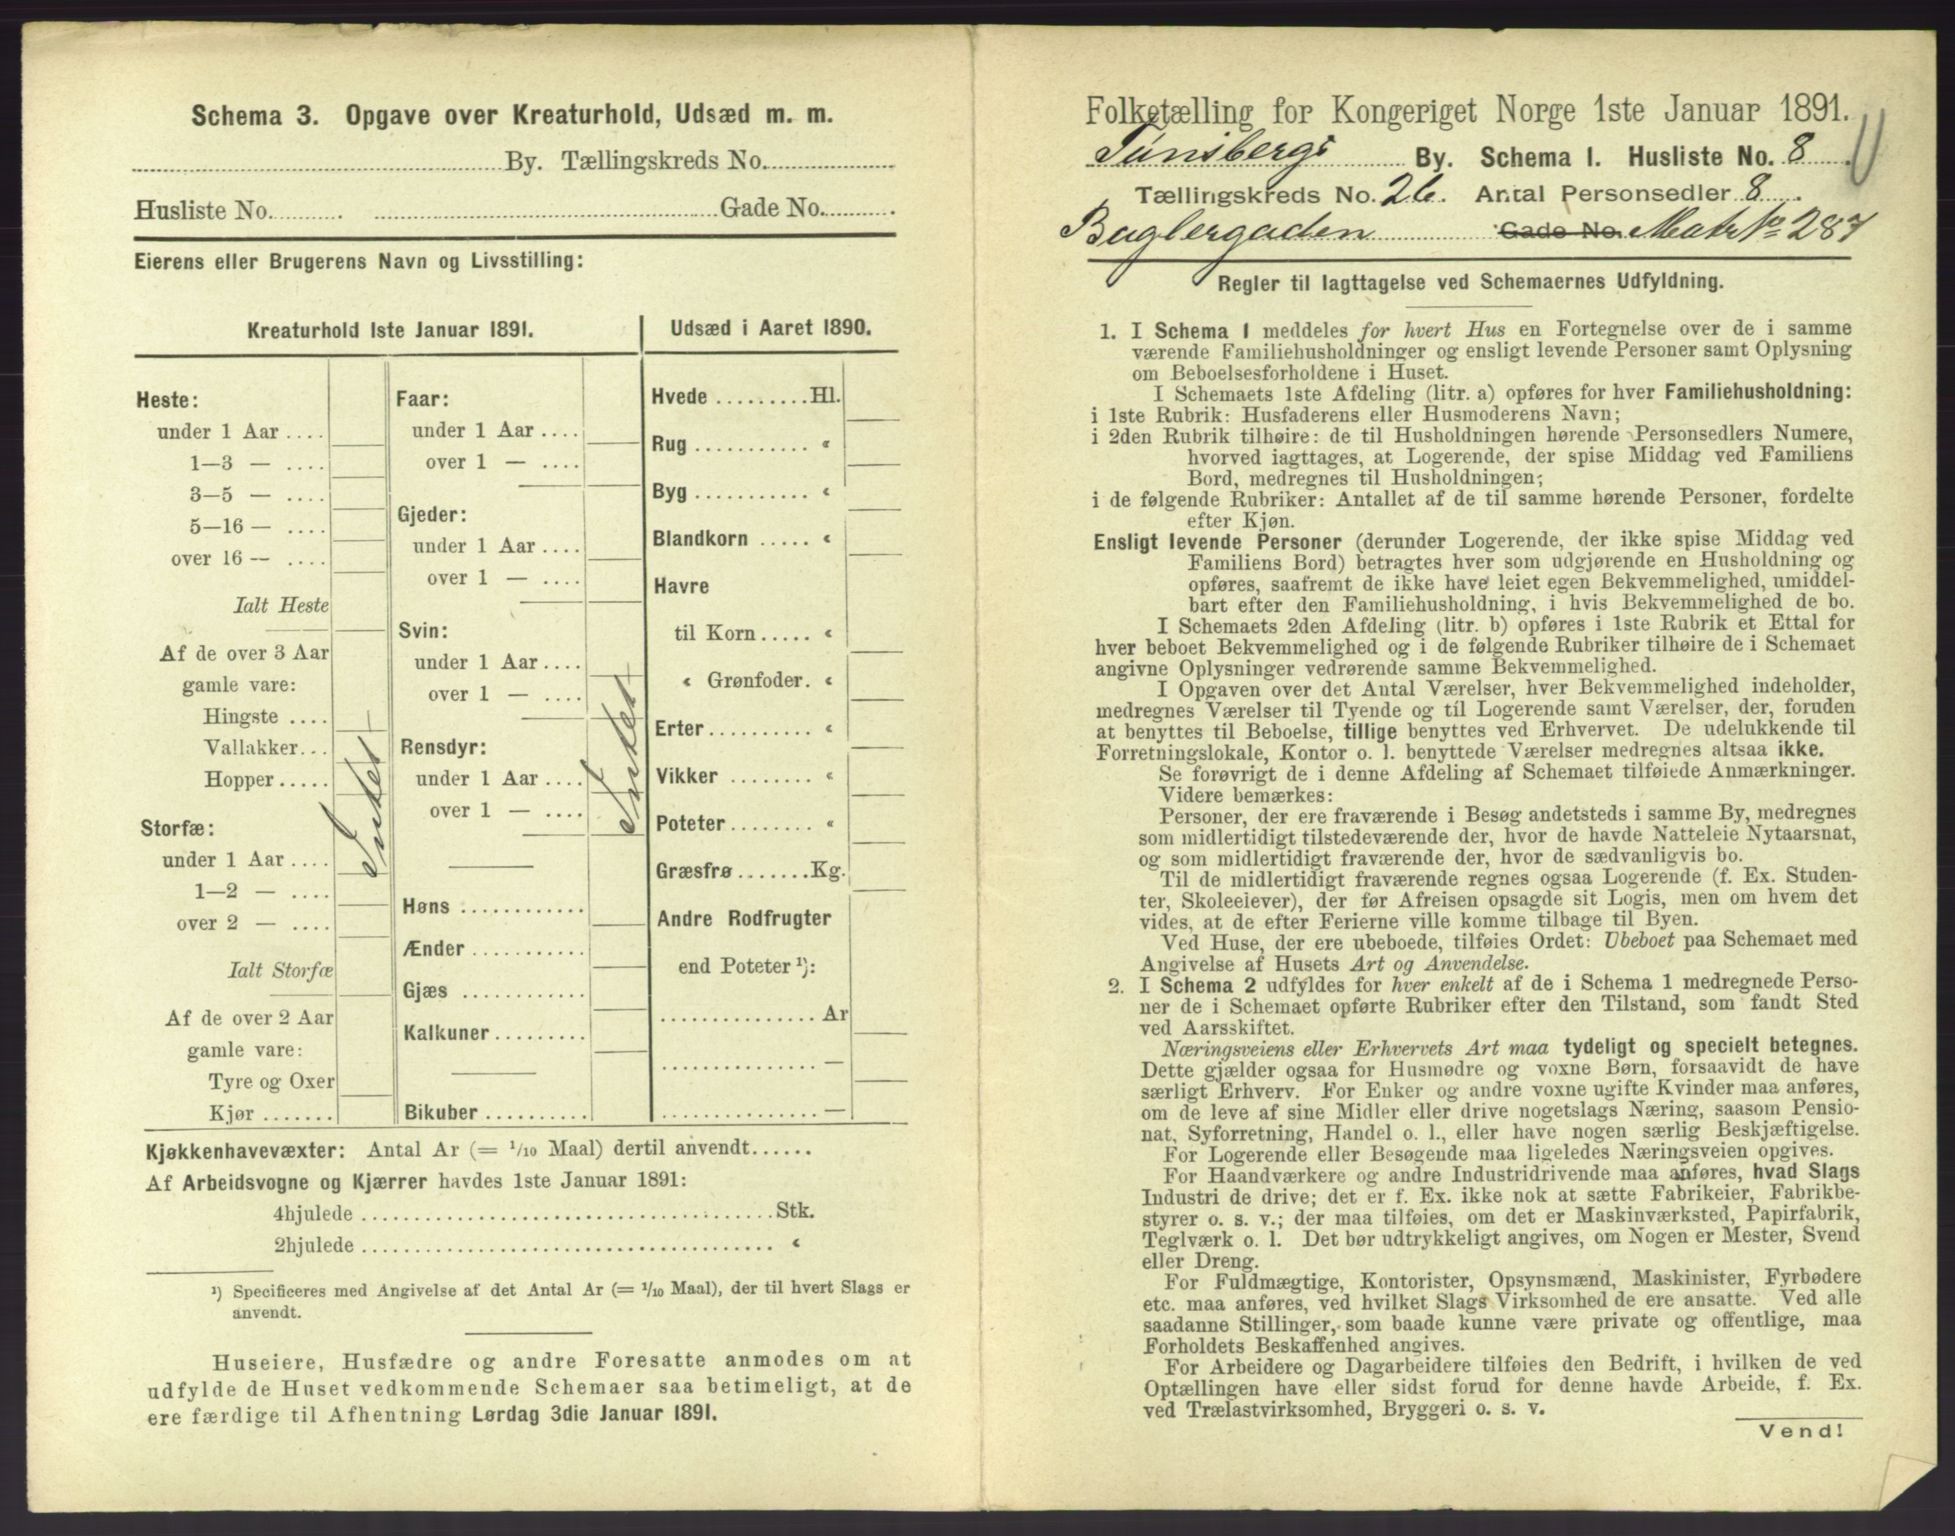 Schema 3. Opgave over Kreaturhold, Udsæd m. m.
By. Tællingskreds No.
Husliste No. Gade No.
Eierens eller Brugerens Navn og Livsstilling:
Kreaturhold 1ste Januar 1891.
Heste:
under 1 Aar ....
1—3 — ....
3—5 — ....
5—16 — ....
over 16 — ....
Ialt Heste
Af de over 3 Aar
gamle vare:
Hingste ....
Vallakker...
Hopper .....
Storfæ:
under 1 Aar ....
1—2 — ....
over 2 — ....
Ialt Storfæ
Af de over 2 Aar
gamle vare:
Tyre og Oxer
Kjør .......
Intet
Faar:
under 1 Aar ....
over 1 — ....
Gjeder:
under 1 Aar ....
over 1 — ....
Svin:
under 1 Aar ....
over 1 — ....
Rensdyr:
under 1 Aar ....
over 1 — ....
Høns ............
Ænder ...........
Gjæs ............
Kalkuner .........
Bikuber ..........
Intet
Udsæd i Aaret 1890.
Hvede ......... Hl.
Rug ........... «
Byg ........... «
Blandkorn ..... «
Havre
til Korn ..... «
« Grønfoder. «
Erter .......... «
Vikker ........ «
Poteter ........ «
Græsfrø ....... Kg.
Andre Rodfrugter
end Poteter ¹):
............... Ar
............... —
............... —
Kjøkkenhavevæxter: Antal Ar (= 1/10 Maal) dertil anvendt......
Af Arbeidsvogne og Kjærrer havdes 1ste Januar 1891:
4hjulede ...................................... Stk.
2hjulede ...................................... «
¹) Specificeres med Angivelse af det Antal Ar (= 1/10 Maal), der til hvert Slags er
anvendt.
Huseiere, Husfædre og andre Foresatte anmodes om at
udfylde de Huset vedkommende Schemaer saa betimeligt, at de
ere færdige til Afhentning Lørdag 3die Januar 1891.
Folketælling for Kongeriget Norge 1ste Januar 1891.
Tünsbergs By. Schema 1. Husliste No. 8
Tællingskreds No. 26. Antal Personsedler 8
Baglergaden Gade No. Matr No 287
Regler til Iagttagelse ved Schemaernes Udfyldning.
1. I Schema 1 meddeles for hvert Hus en Fortegnelse over de i samme
værende Familiehusholdninger og ensligt levende Personer samt Oplysning
om Beboelsesforholdene i Huset.
I Schemaets 1ste Afdeling (litr. a) opføres for hver Familiehusholdning:
i 1ste Rubrik: Husfaderens eller Husmoderens Navn;
i 2den Rubrik tilhøire: de til Husholdningen hørende Personsedlers Numere,
hvorved iagttages, at Logerende, der spise Middag ved Familiens
Bord, medregnes til Husholdningen;
i de følgende Rubriker: Antallet af de til samme hørende Personer, fordelte
efter Kjøn.
Ensligt levende Personer (derunder Logerende, der ikke spise Middag ved
Familiens Bord) betragtes hver som udgjørende en Husholdning og
opføres, saafremt de ikke have leiet egen Bekvemmelighed, umiddel-
bart efter den Familiehusholdning, i hvis Bekvemmelighed de bo.
I Schemaets 2den Afdeling (litr. b) opføres i 1ste Rubrik et Ettal for
hver beboet Bekvemmelighed og i de følgende Rubriker tilhøire de i Schemaet
angivne Oplysninger vedrørende samme Bekvemmelighed.
I Opgaven over det Antal Værelser, hver Bekvemmelighed indeholder,
medregnes Værelser til Tyende og til Logerende samt Værelser, der, foruden
at benyttes til Beboelse, tillige benyttes ved Erhvervet. De udelukkende til
Forretningslokale, Kontor o. l. benyttede Værelser medregnes altsaa ikke.
Se forøvrigt de i denne Afdeling af Schemaet tilføiede Anmærkninger.
Videre bemærkes:
Personer, der ere fraværende i Besøg andetsteds i samme By, medregnes
som midlertidigt tilstedeværende der, hvor de havde Natteleie Nytaarsnat,
og som midlertidigt fraværende der, hvor de sædvanligvis bo.
Til de midlertidigt fraværende regnes ogsaa Logerende (f. Ex. Studen-
ter, Skoleeiever), der før Afreisen opsagde sit Logis, men om hvem det
vides, at de efter Ferierne ville komme tilbage til Byen.
Ved Huse, der ere ubeboede, tilføies Ordet: Ubeboet paa Schemaet med
Angivelse af Husets Art og Anvendelse.
2. I Schema 2 udfyldes for hver enkelt af de i Schema 1 medregnede Perso-
ner de i Schemaet opførte Rubriker efter den Tilstand, som fandt Sted
ved Aarsskiftet.
Næringsveiens eller Erhvervets Art maa tydeligt og specielt betegnes.
Dette gjælder ogsaa for Husmødre og voxne Børn, forsaavidt de have
særligt Erhverv. For Enker og andre voxne ugifte Kvinder maa anføres,
om de leve af sine Midler eller drive nogetslags Næring, saasom Pensio-
nat, Syforretning, Handel o. l., eller have nogen særlig Beskjæftigelse.
For Logerende eller Besøgende maa ligeledes Næringsveien opgives.
For Haandværkere og andre Industridrivende maa anføres, hvad Slags
Industri de drive; det er f. Ex. ikke nok at sætte Fabrikeier, Fabrikbe-
styrer o. s. v.; der maa tilføies, om det er Maskinværksted, Papirfabrik,
Teglværk o. l. Det bør udtrykkeligt angives, om Nogen er Mester, Svend
eller Dreng.
For Fuldmægtige, Kontorister, Opsynsmænd, Maskinister, Fyrbødere
etc. maa anføres, ved hvilket Slags Virksomhed de ere ansatte. Ved alle
saadanne Stillinger, som baade kunne være private og offentlige, maa
Forholdets Beskaffenhed angives.
For Arbeidere og Dagarbeidere tilføies den Bedrift, i hvilken de ved
Optællingen have eller sidst forud for denne havde Arbeide, f. Ex.
ved Trælastvirksomhed, Bryggeri o. s. v.
Vend!